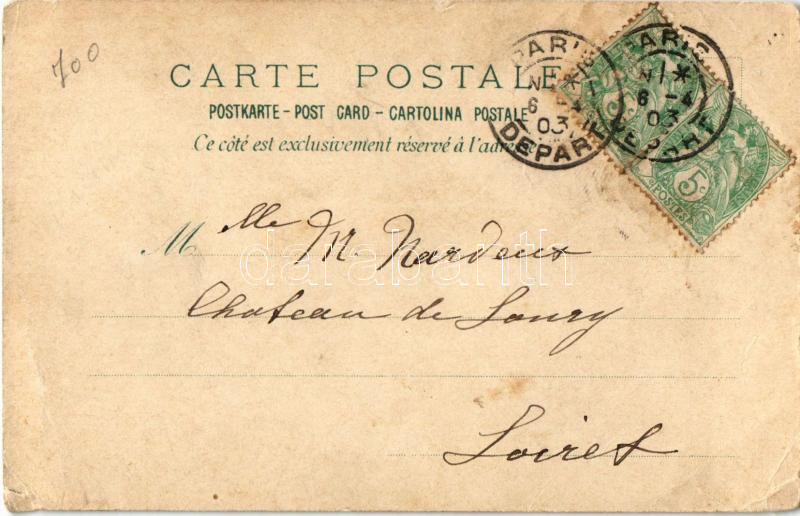 700
CARTE POSTALE
POSTKARTE - POST CARD - CARTOLINA POSTALE
Ce côté est exclusivement réservé à l'adresse
PARIS
6 -4
03
DEPART
PARIS
6 -4
03
5c
POSTES
Mlle M. Nardeux
Chateau de Loury
Loiret
darabanth